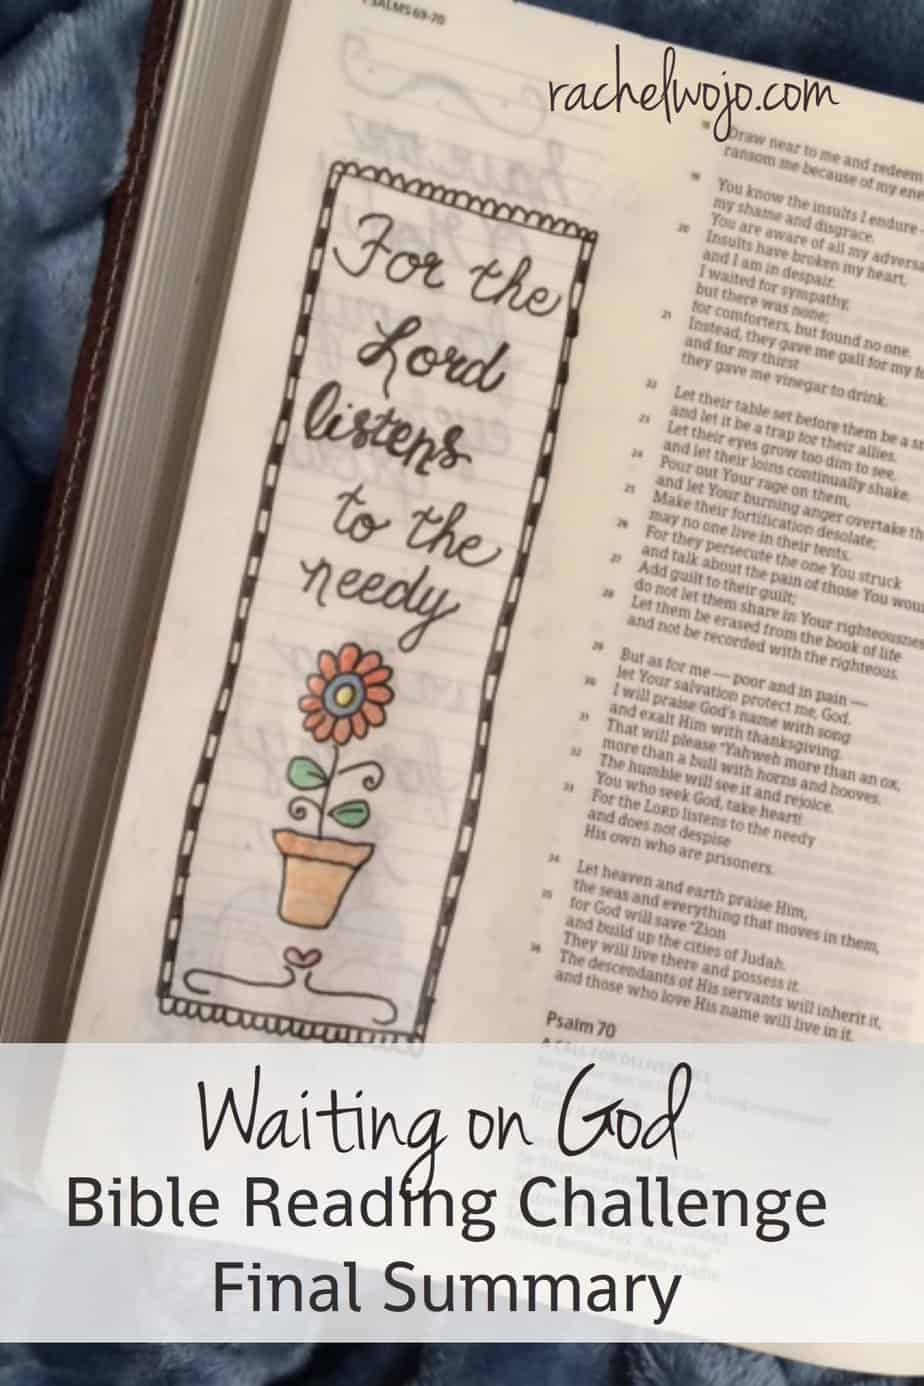 PSALMS 69-70
rachelwojo.com
For the
Lord
listens
to the
needy
18 Draw near to me and redeem
ransom me because of my
19 You know the insults I endure —
my shame and disgrace.
20 You are aware of all my
Insults have broken my heart,
and I am in despair.
I waited for sympathy,
but there was none;
21 for comforters, but found no one.
Instead, they gave me gall for my
and for my thirst
they gave me vinegar to drink.
22 Let their table set before them be a
and let it be a trap for their allies.
23 Let their eyes grow too dim to see,
and let their loins continually shake.
24 Pour out Your rage on them,
and let Your burning anger overtake
25 Make their fortification desolate;
may no one live in their tents.
26 For they persecute the one You struck
and talk about the pain of those You
27 Add guilt to their guilt;
do not let them share in Your
28 Let them be erased from the book of life
and not be recorded with the righteous.
29 But as for me — poor and in pain —
let Your salvation protect me, God.
30 I will praise God's name with song
and exalt Him with thanksgiving.
31 That will please Yahweh more than an ox,
more than a bull with horns and hooves.
32 The humble will see it and rejoice.
You who seek God, take heart!
33 For the LORD listens to the needy
and does not despise
His own who are prisoners.
34 Let heaven and earth praise Him,
the seas and everything that moves in them,
35 for God will save Zion
and build up the cities of Judah.
They will live there and possess it.
36 The descendants of His servants will inherit it,
and those who love His name will live in it.
Psalm 70
A CALL FOR DELIVERANCE
Waiting on God
Bible Reading Challenge
Final Summary